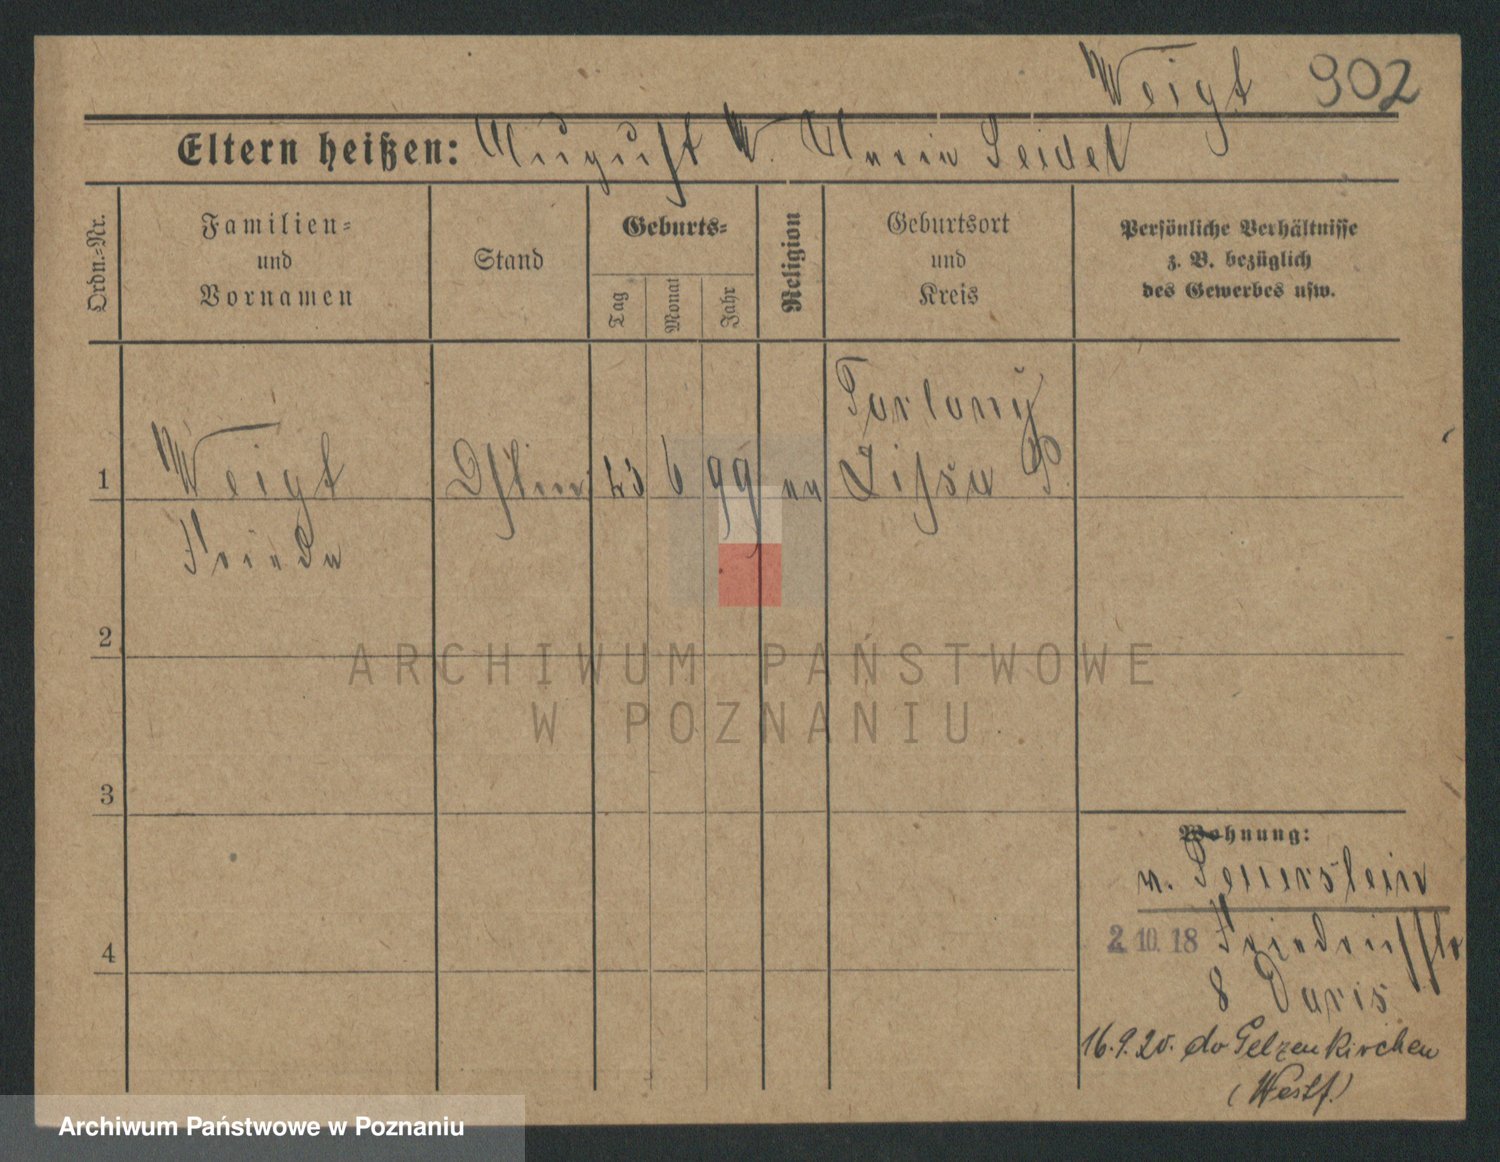 Weigt 902
Eltern heißen: August W. Maria Seidel
Ordn.-Nr.
Familien-
und
Vornamen
Stand
Geburts-
Tag
Monat
Jahr
Religion
Geburtsort
und
Kreis
Persönliche Verhältnisse
z. B. bezüglich
des Gewerbes usw.
1
Weigt
23 6 99
Lissa P.
Frieda
2
3
4
Wohnung:
v. Feuerstein
2. 10. 18
8
16.9.20. do Gelzenkirchen
(Westf.)
ARCHIWUM PAŃSTWOWE
W POZNANIU
Archiwum Państwowe w Poznaniu